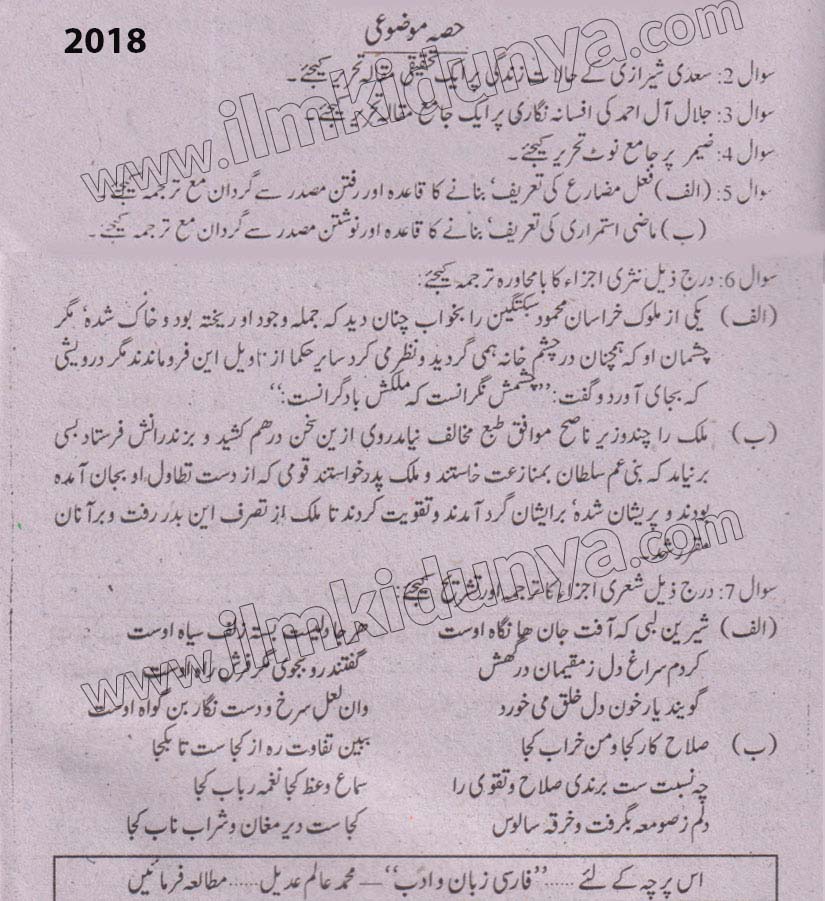 2018
حصہ موضوعی
سوال 2: سعدی شیرازی کے حالات زندگی پر ایک تحقیقی مقالہ تحریر کیجئے۔
سوال 3: جلال آل احمد کی افسانہ نگاری پر ایک جامع مقالہ تحریر کیجئے۔
سوال 4: ضیمر پر جامع نوٹ تحریر کیجئے۔
سوال 5: (الف) فعل مضارع کی تعریف، بنانے کا قاعدہ اور رفتن مصدر سے گردان مع ترجمہ کیجئے۔
(ب) ماضی استمراری کی تعریف، بنانے کا قاعدہ اور نوشتن مصدر سے گردان مع ترجمہ کیجئے۔
سوال 6: درج ذیل نثری اجزاء کا با محاورہ ترجمہ کیجئے:
(الف) یکی از ملوک خراسان محمود سبکتگین را بخواب چنان دید کہ جملہ وجود او ریختہ بود و خاک شدہ، مگر
چشمان او کہ ہمچنان در چشم خانہ ہمی گردید و نظر می کرد سایر حکما از تاویل این فروماندند مگر درویشی
کہ بجای آورد و گفت: ''چشمش نگرانست کہ ملکش بادگرانست:''
(ب) ملک را چند وزیر ناصح موافق طبع مخالف نیامد روی ازین سخن درہم کشید و بزندرانش فرستاد بسی
برنیامد کہ بنی عم سلطان بمنازعت خاستند و ملک پدر خواستند قومی کہ از دست تطاول او بجان آمدہ
بودند و پریشان شدہ، برایشان گرد آمدند و تقویت کردند تا ملک از تصرف این بدر رفت و بر آنان
مقرر شد۔
سوال 7: درج ذیل شعری اجزاء کا ترجمہ اور تشریح کیجئے:
(الف) شیرین لبی کہ آفت جان ھا نگاہ اوست ھر جا دلیست بستہ زلف سیاہ اوست
کردم سراغ دل ز مقیمان درگھش گفتند رو بجوی مگر فرش راہ اوست
گویند یار خون دل خلق می خورد وان لعل سرخ و دست نگار بن گواہ اوست
(ب) صلاح کار کجا و من خراب کجا ببین تفاوت رہ از کجا ست تا بکجا
چہ نسبت ست برندی صلاح و تقوی را سماع وعظ کجا نغمہ رباب کجا
دلم ز صومعہ بگرفت و خرقہ سالوس کجا ست دیر مغان و شراب ناب کجا
اس پرچہ کے لئے ...... ''فارسی زبان و ادب'' — محمد عالم عدیل ...... مطالعہ فرمائیں
www.ilmkidunya.com
www.ilmkidunya.com